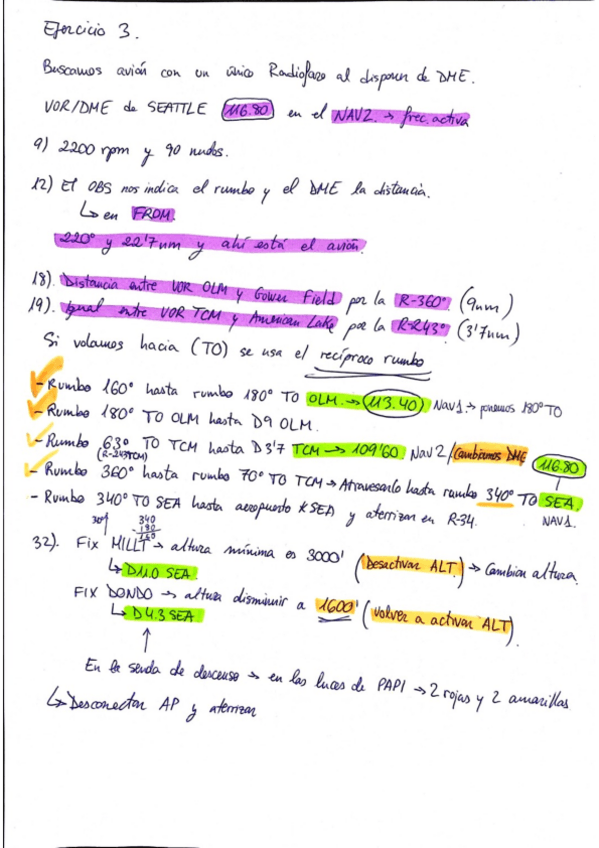 Ejercicio 3.
Buscamos avión con un único Radiofaro al disponer de DME.
VOR/DME de SEATTLE 116.80 en el NAV2. → frec. activa
9) 2200 rpm y 90 nudos.
12) El OBS nos indica el rumbo y el DME la distancia.
↳ en FROM.
220° y 22'7 nm y ahí está el avión.
18). Distancia entre VOR OLM y Gower Field por la R-360° (9nm)
19). Igual entre VOR TCM y American Lake por la R-243° (3'7nm)
Si volamos hacia (TO) se usa el recíproco rumbo
- Rumbo 160° hasta rumbo 180° TO OLM. → 113.40 Nav1 → ponemos 180° TO
- Rumbo 180° TO OLM hasta D9 OLM.
- Rumbo 63° TO TCM hasta D3'7 TCM → 109'60. Nav2/Cambiamos DME 116.80
(R-243TCM)
- Rumbo 360° hasta rumbo 70° TO TCM → Atravesarlo hasta rumbo 340° TO SEA.
- Rumbo 340° TO SEA hasta aeropuerto KSEA y aterrizar en R-34. NAV1.
340
180
160
32). Fix MILLT → altura mínima es 3000' (Desactivar ALT.) → Cambiar altura.
↳ D11.0 SEA.
FIX DONDO → altura disminuir a 1600' (Volver a activar ALT).
↳ D4.3 SEA
↑
En la senda de descenso → en las luces de PAPI → 2 rojas y 2 amarillas
↳ Desconectar AP y aterrizar